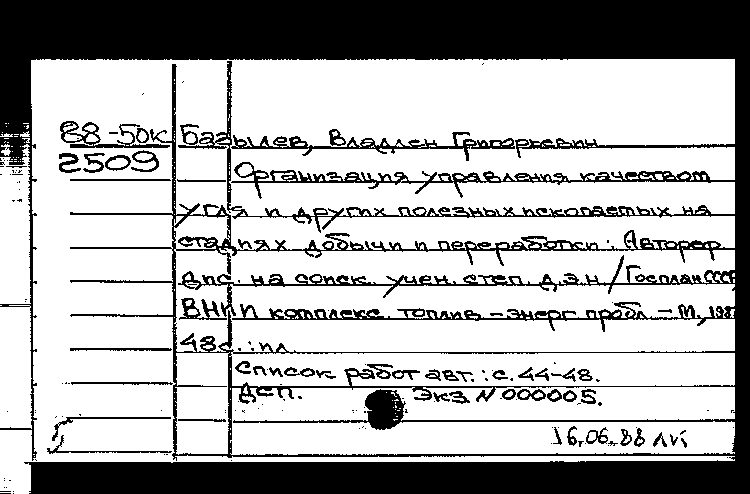 88-50к Базылев, Владлен Григорьевич
2509
Организация управления качеством
угля и других полезных ископаемых на
стадиях добычи и переработки: Автореф.
дис. на соиск. учен. степ. д.э.н. / Госплан СССР,
ВНИИ комплекс. топлив.-энерг. пробл. - М., 198
48с.: ил.
Список работ авт.: с. 44-48.
ДСП. Экз N 000005.
5 16.06.88